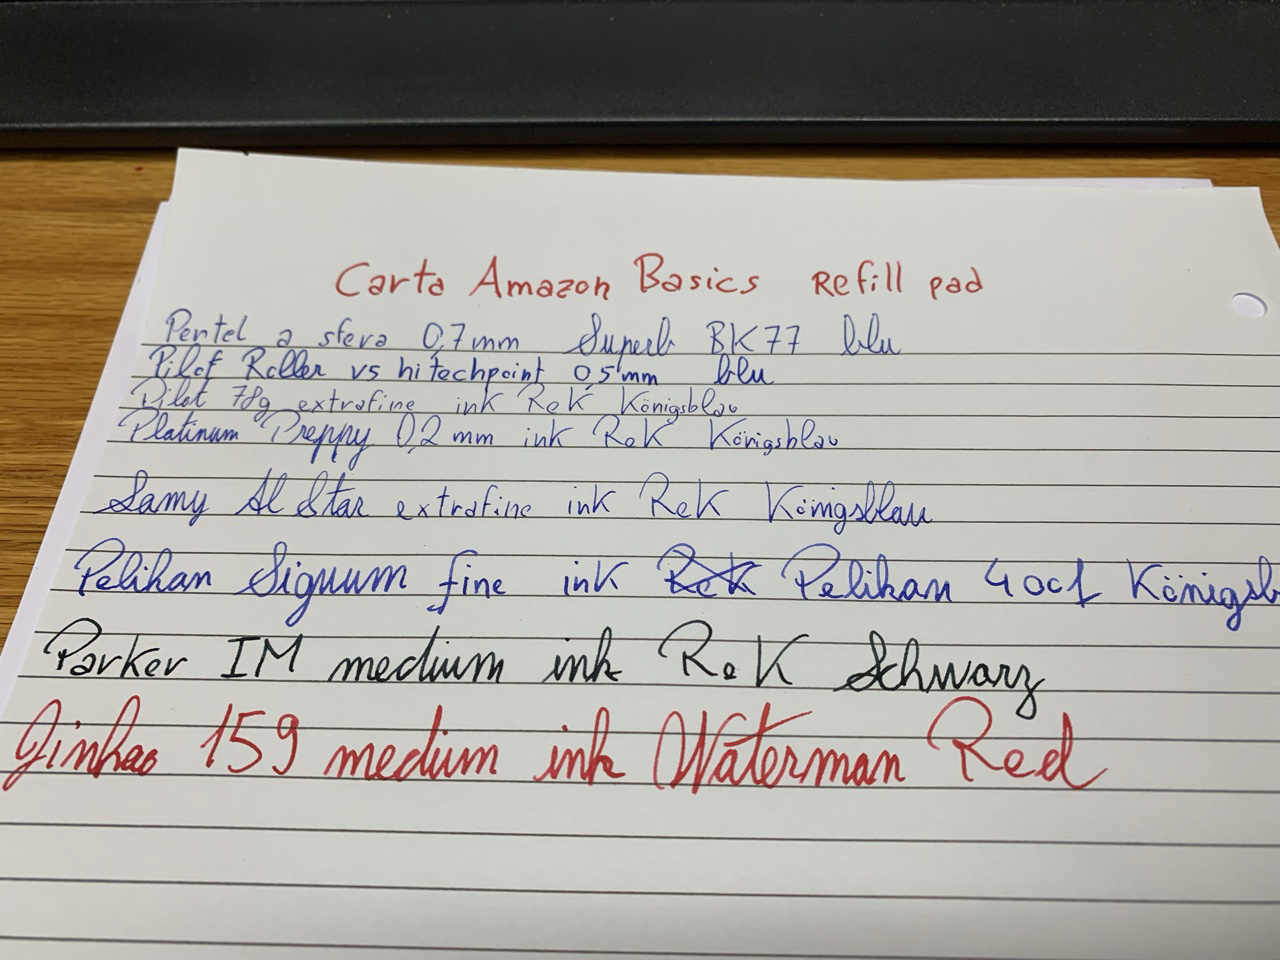 Carta Amazon Basics Refill pad
Pentel a sfera 0,7mm Superb BK77 blu
Pilot Roller vs hitechpoint 05mm blu
Pilot 78g extrafine ink ReK Königsblau
Platinum Preppy 0,2 mm ink ReK Königsblau
Lamy Al Star extrafine ink ReK Königsblau
Pelikan Signum fine ink ReK Pelikan 4001 Königsb
Parker IM medium ink ReK Schwarz
Jinhao 159 medium ink Waterman Red